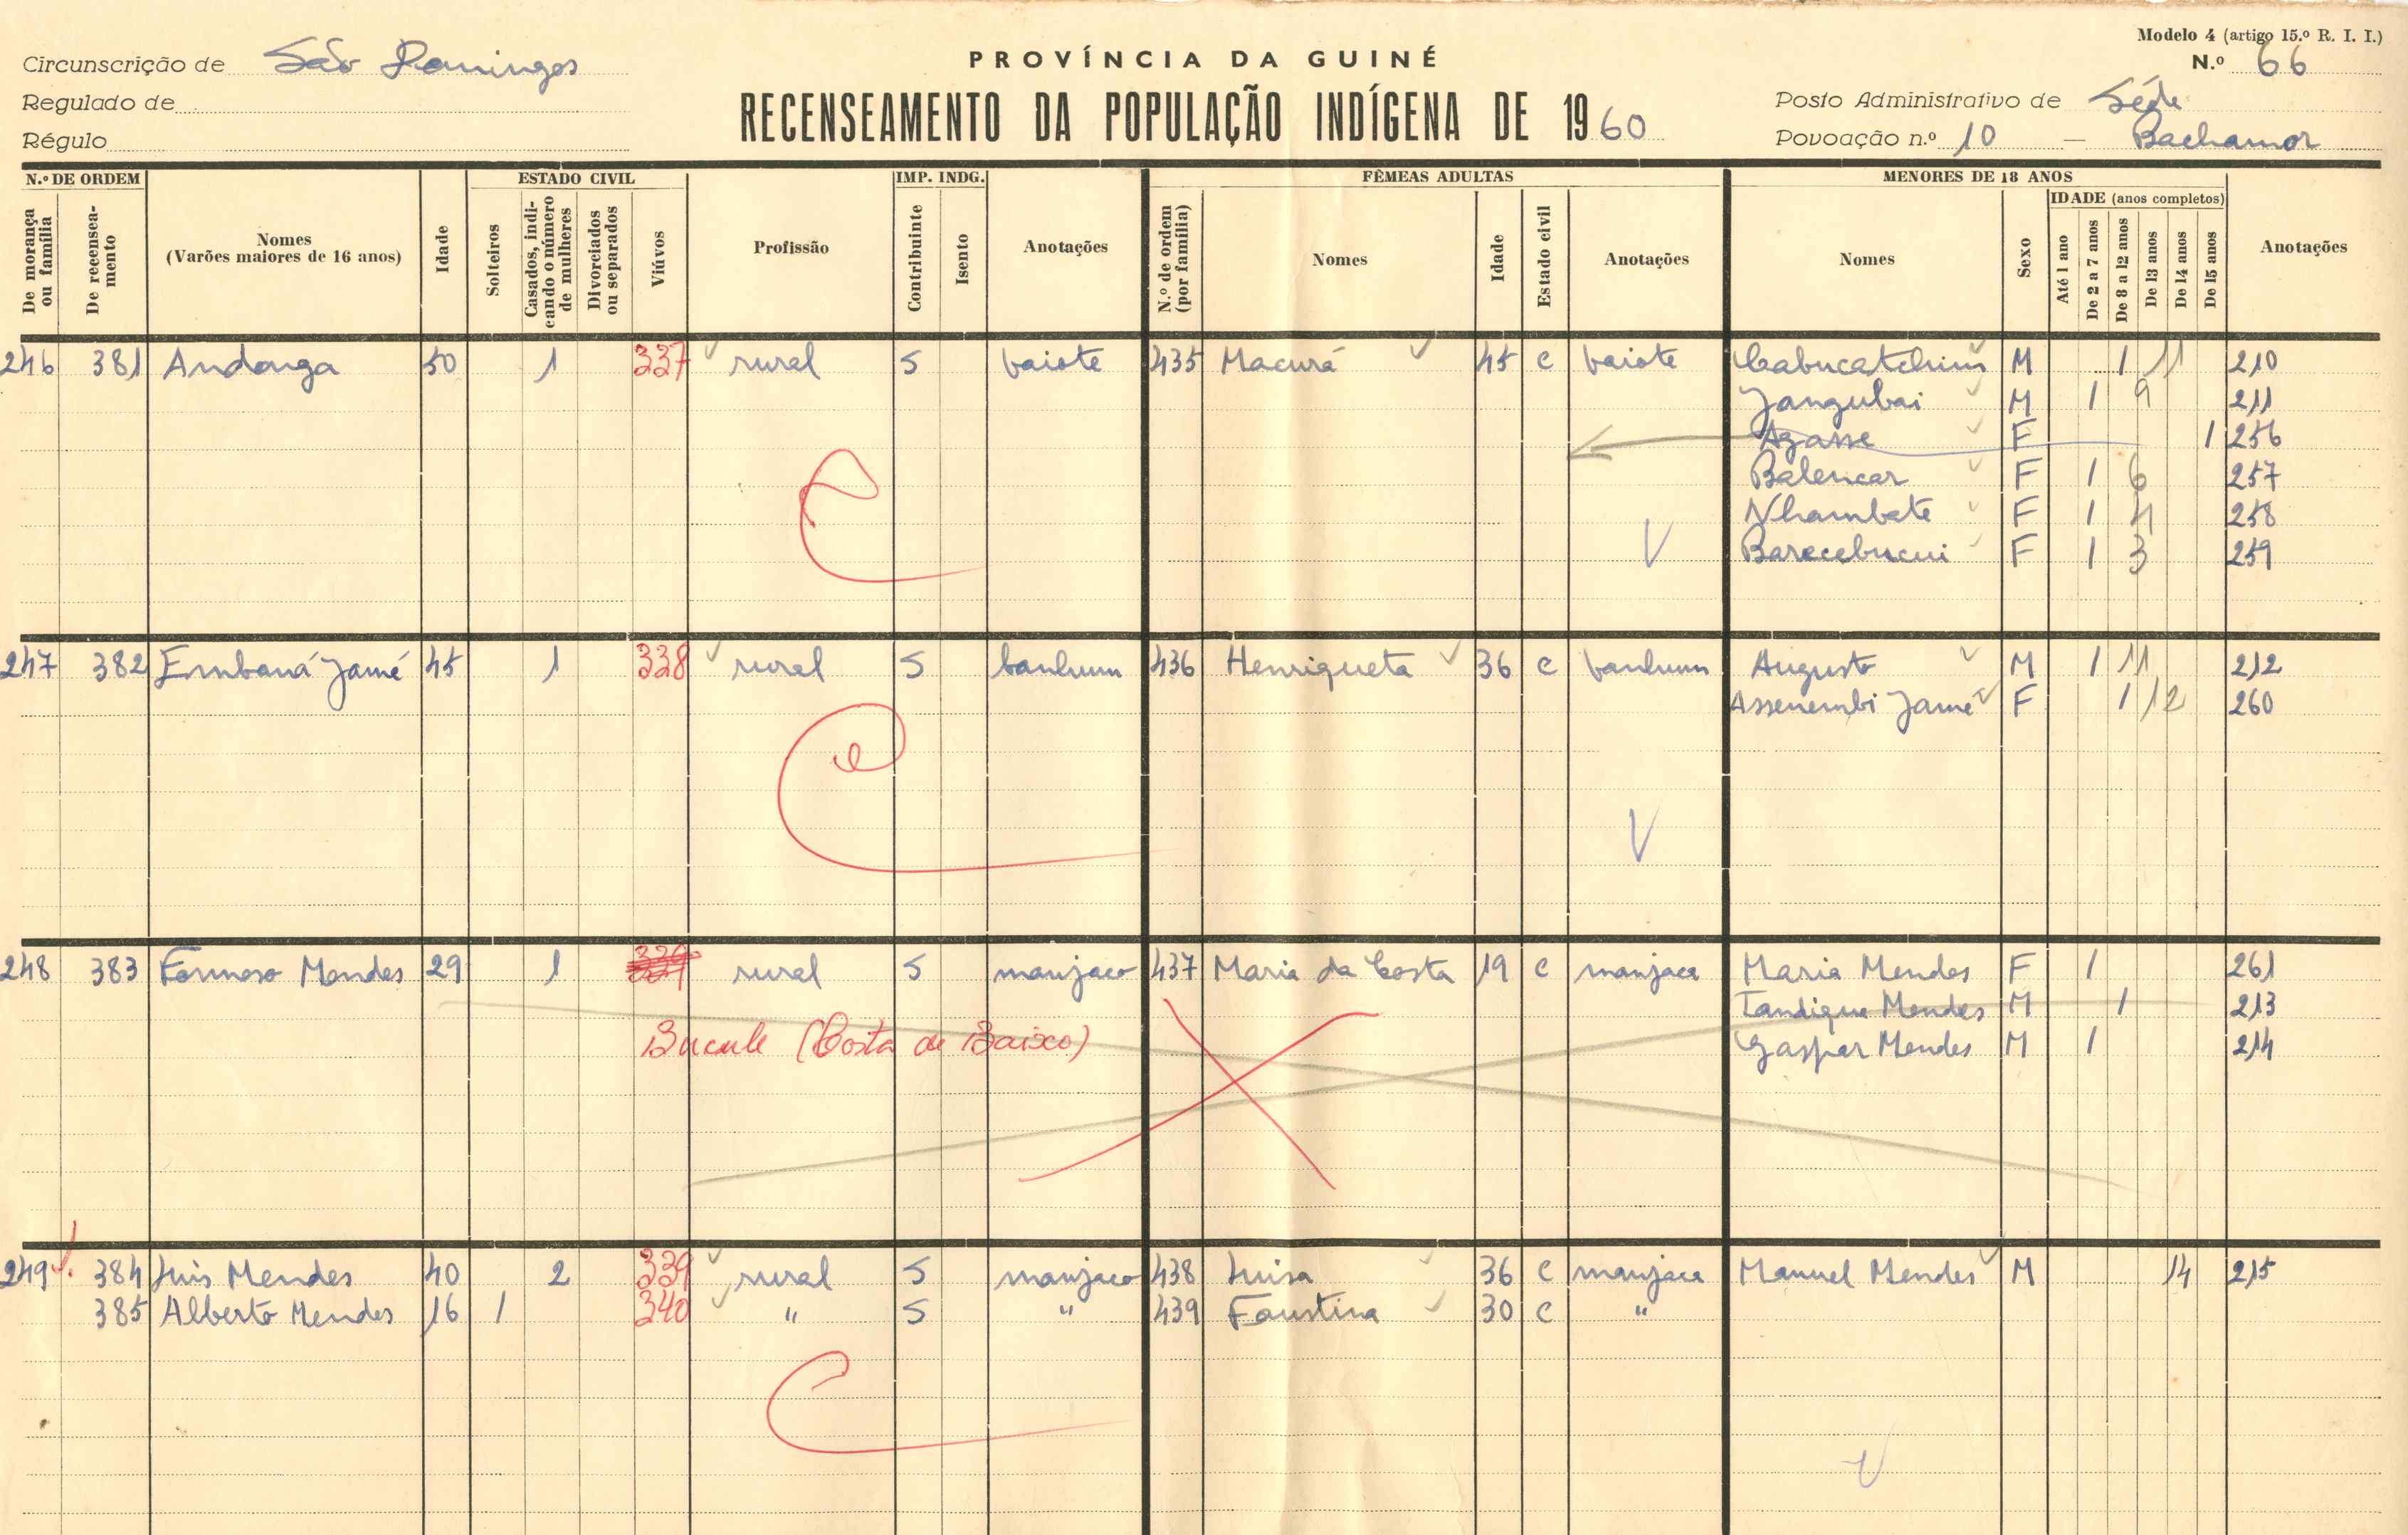 Modelo 4 (artigo 15.º R. I. I.)
Circunscrição de São Domingos
PROVÍNCIA DA GUINÉ
N.º 66
Regulado de
RECENSEAMENTO DA POPULAÇÃO INDÍGENA DE 1960
Posto Administrativo de Séde
Régulo
Povoação n.º 10 — Bachamor
N.º DE ORDEM
ESTADO CIVIL
IMP. INDG.
FÊMEAS ADULTAS
MENORES DE 18 ANOS
De morança ou família
De recenseamento
Nomes
(Varões maiores de 16 anos)
Idade
Solteiros
Casados, indicando o número de mulheres
Divorciados ou separados
Viúvos
Profissão
Contribuinte
Isento
Anotações
N.º de ordem (por família)
Nomes
Idade
Estado civil
Anotações
Nomes
Sexo
IDADE (anos completos)
Até 1 ano
De 2 a 7 anos
De 8 a 12 anos
De 13 anos
De 14 anos
De 15 anos
Anotações
246 381 Andonga 50 1 337 rural S baiote 435 Macurá 45 c baiote Cabucatchim M 1 11 210
Jangubai M 1 9 211
Agasse F 1 256
Balencar F 1 6 257
Nhambate F 1 4 258
Barecebucui F 1 3 259
247 382 Embaná Jamé 45 1 338 rural S banhum 436 Henriqueta 36 c banhum Augusto M 1 11 212
Assenembi Jamé F 1 12 260
248 383 Formoso Mendes 29 1 339 rural S manjaco 437 Maria da Costa 19 c manjaca Maria Mendes F 1 261
Tandique Mendes M 1 213
Bucule (Costa de Baixo) Gaspar Mendes M 1 214
249 384 Luis Mendes 40 2 339 rural S manjaco 438 Luisa 36 c manjaca Manuel Mendes M 14 215
385 Alberto Mendes 16 1 340 " S " 439 Faustina 30 c "